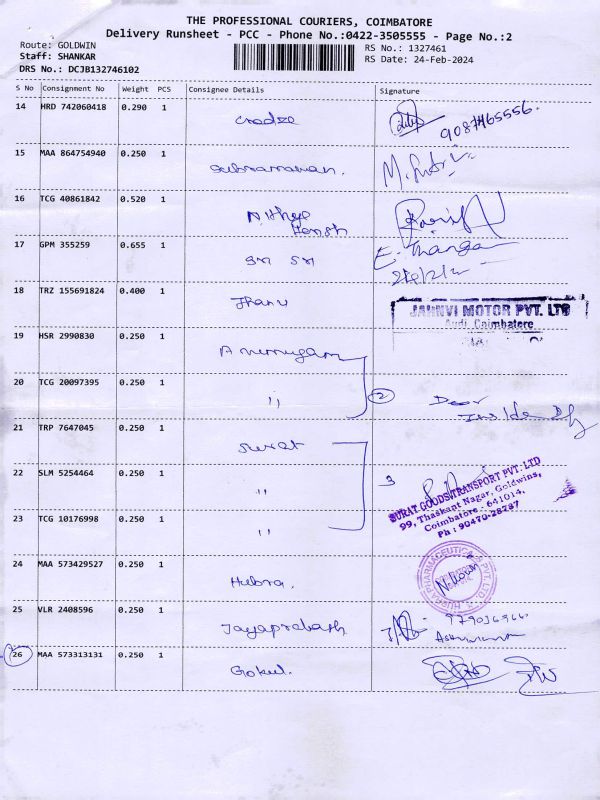 THE PROFESSIONAL COURIERS, COIMBATORE
Delivery Runsheet - PCC - Phone No.:0422-3505555 - Page No.:2
Route: GOLDWIN
RS No.: 1327461
Staff: SHANKAR
RS Date: 24-Feb-2024
DRS No.: DCJB132746102
S No Consignment No Weight PCS Consignee Details Signature
14 HRD 742060418 0.290 1
9087465556.
15 MAA 864754940 0.250 1 Subramanian.
16 TCG 40861842 0.520 1
17 GPM 355259 0.655 1 Sri Sri
18 TRZ 155691824 0.400 1 Jhanu
JAHNVI MOTOR PVT. LTD
Audi, Coimbatore
19 HSR 2990830 0.250 1
20 TCG 20097395 0.250 1 ,, 2 Door
21 TRP 7647045 0.250 1 Surat
22 SLM 5254464 0.250 1 ,, 3
SURAT GOODS TRANSPORT PVT. LTD
99, Thaskant Nagar, Goldwins,
Coimbatore - 641014.
Ph : 90470-28787
23 TCG 10176998 0.250 1 ,,
24 MAA 573429527 0.250 1 Hubra.
25 VLR 2408596 0.250 1 Jayaprakash
26 MAA 573313131 0.250 1 Gokul.